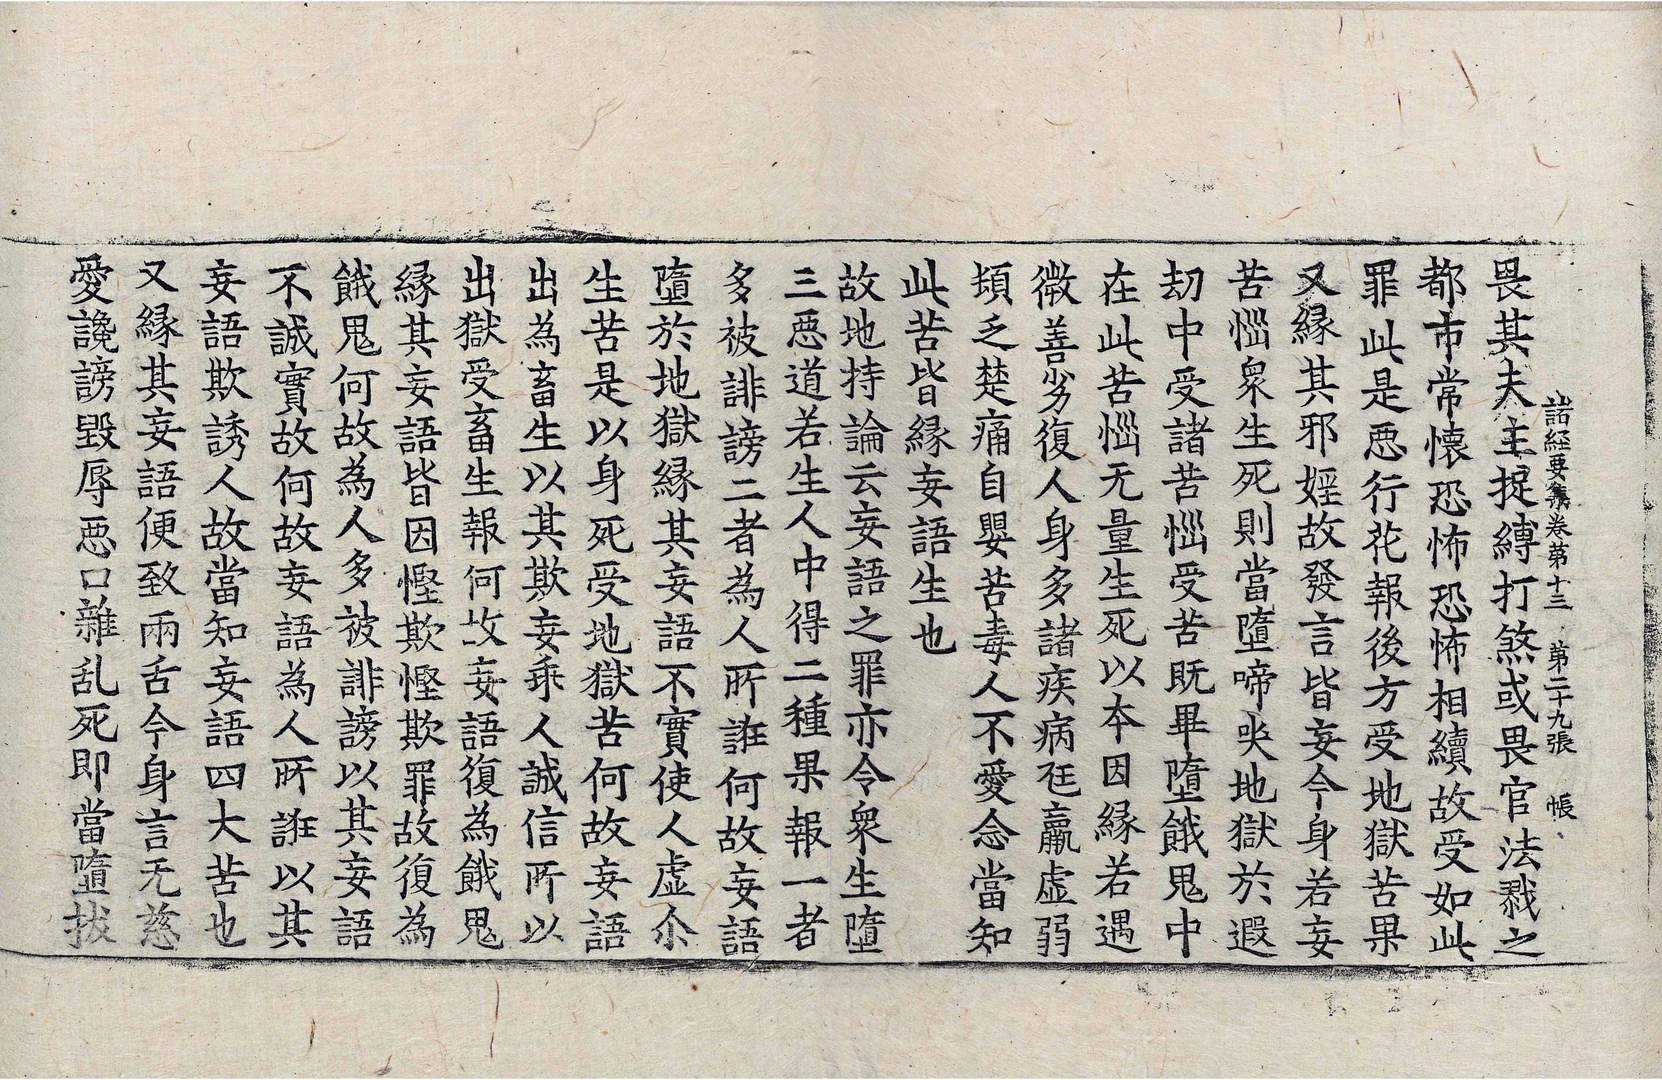 諸経要集卷第十三 第二十九張 帳
畏其夫主捉縛打煞或畏官法戮之
都市常懷恐怖恐怖相續故受如此
罪此是惡行花報後方受地獄苦果
又緣其邪婬故發言皆妄今身若妄
苦惱衆生死則當墮啼哭地獄於遐
劫中受諸苦惱受苦既畢墮餓鬼中
在此苦惱无量生死以本因緣若遇
微善劣復人身多諸疾病尪羸虛弱
頓乏楚痛自嬰苦毒人不愛念當知
此苦皆緣妄語生也
故地持論云妄語之罪亦令衆生墮
三惡道若生人中得二種果報一者
多被誹謗二者為人所誑何故妄語
墮於地獄緣其妄語不實使人虛尒
生苦是以身死受地獄苦何故妄語
出為畜生以其欺妄妄乖人誠信所以
出獄受畜生報何故妄語復為餓鬼
緣其妄語皆因慳欺慳欺罪故復為
餓鬼何故為人多被誹謗以其妄語
不誠實故何故妄語為人所誑以其
妄語欺誘人故當知妄語四大苦也
又緣其妄語便致兩舌今身言无慈
愛讒謗毀辱惡口雜乱死即當墮拔